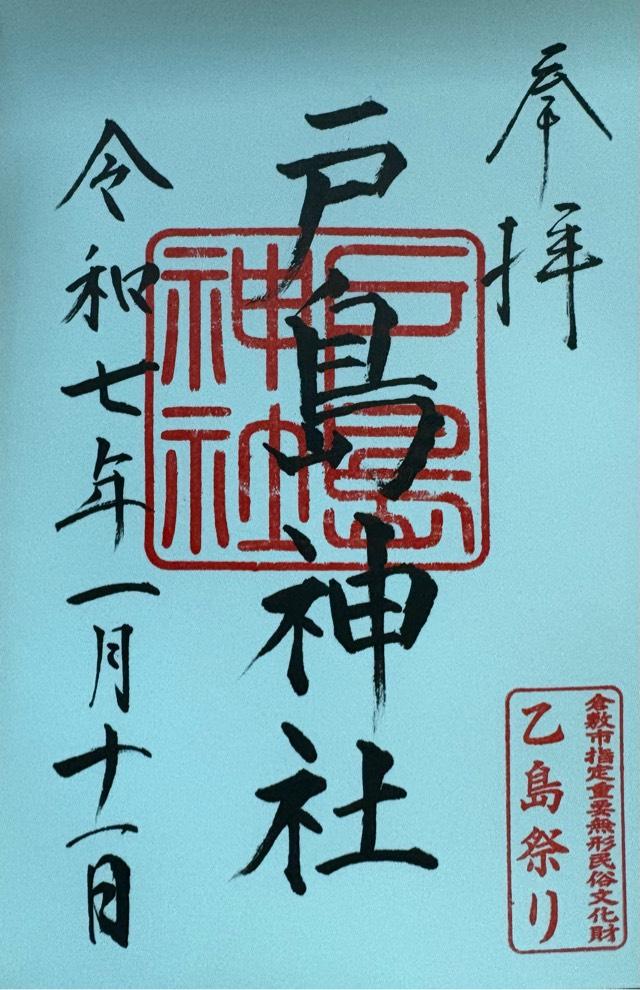 奉拝
戸島神社
戸島神社
令和七年一月十一日
倉敷市指定重要無形民俗文化財
乙島祭り